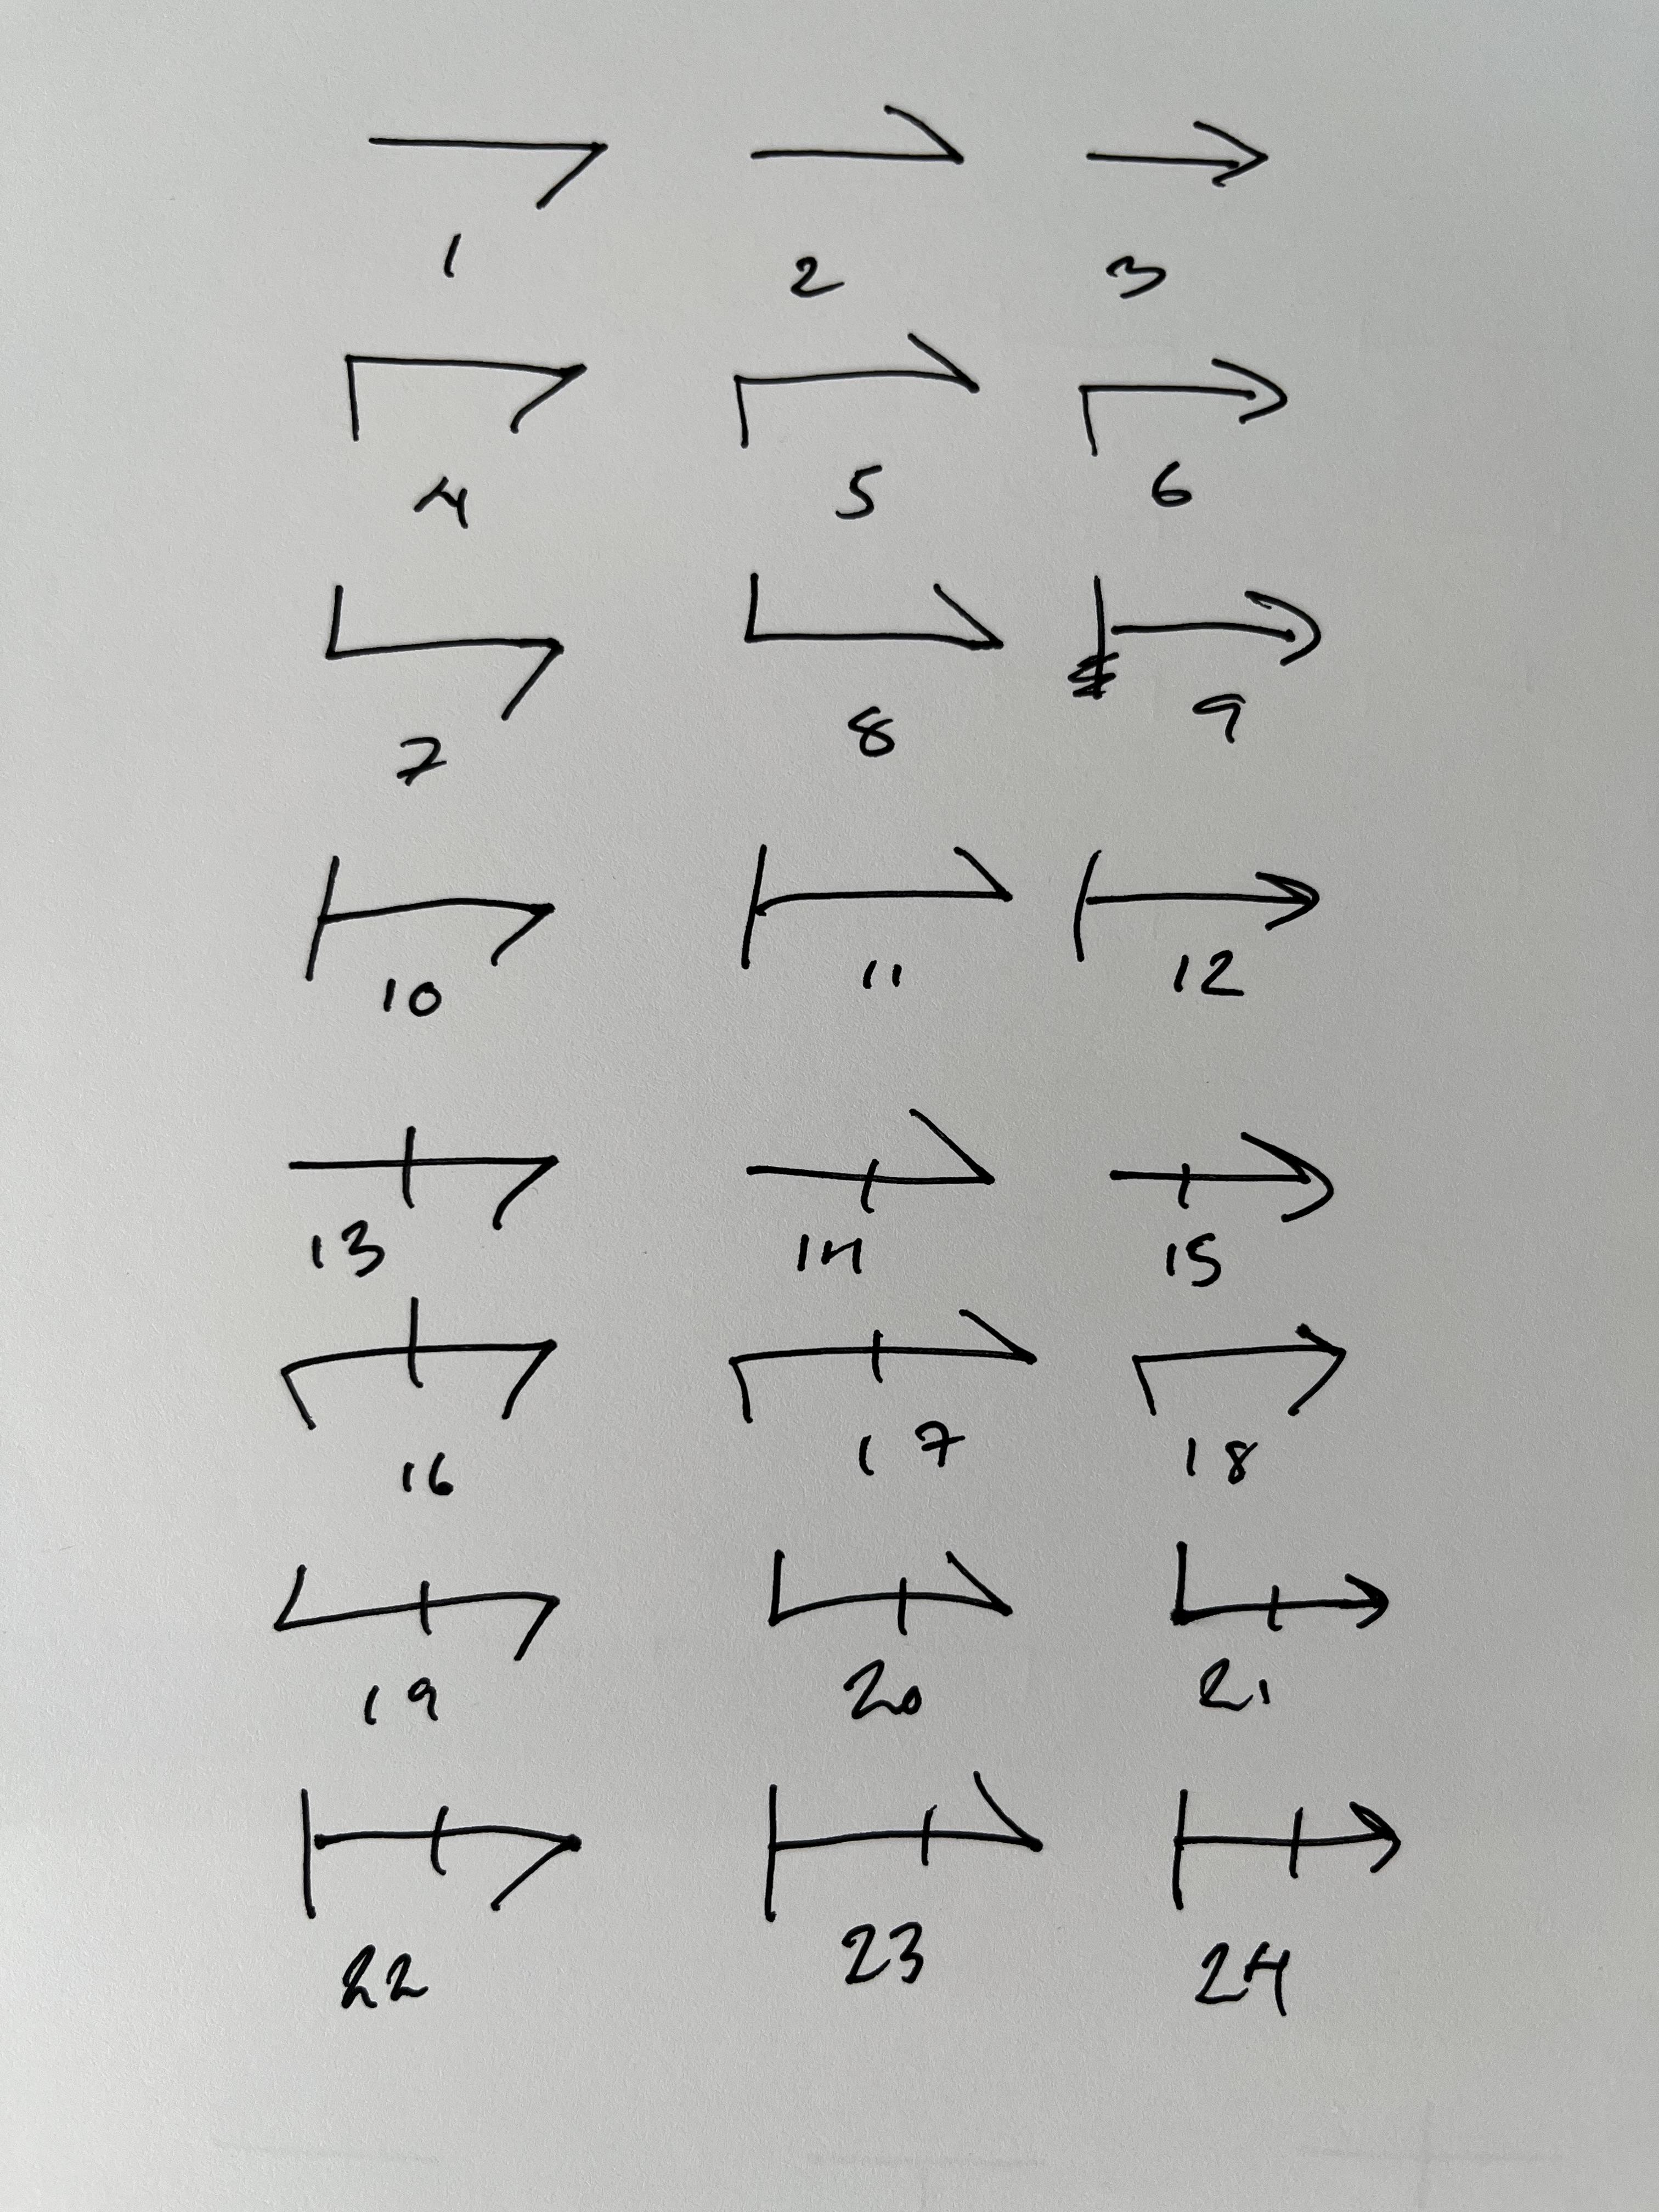 1 2 3
4 5 6
7 8 9
10 11 12
13 14 15
16 17 18
19 20 21
22 23 24